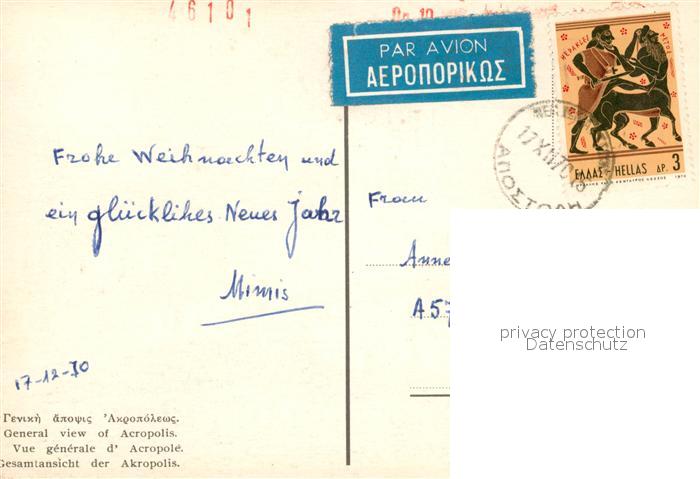 46101
PAR AVION
ΑΕΡΟΠΟΡΙΚΩΣ
ΗΡΑΚΛΕΙ
ΕΛΛΑΣ-HELLAS ΔΡ. 3
1970
17 XII 70
ΑΠΟΣΤΟΛΗ
Frohe Weihnachten und
ein glückliches Neues Jahr
Mimis
17-12-70
Frau
Anne
A57
privacy protection
Datenschutz
Γενικὴ ἄποψις Ἀκροπόλεως.
General view of Acropolis.
Vue générale d' Acropole.
Gesamtansicht der Akropolis.